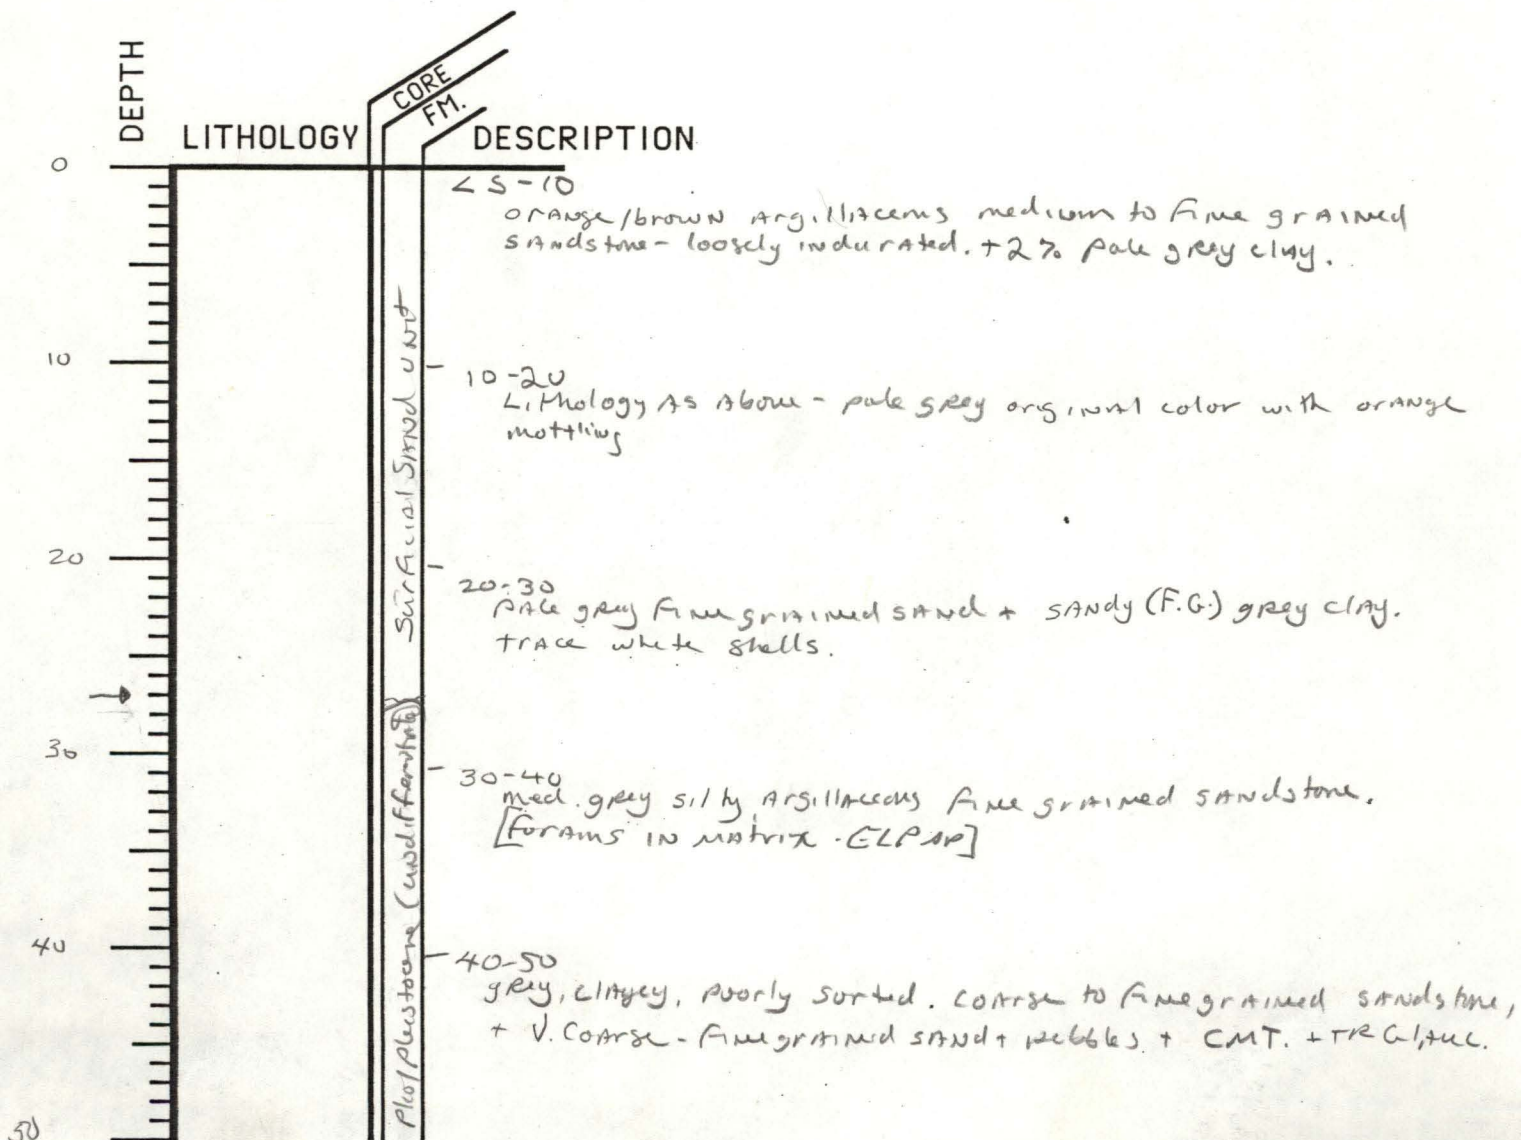 DEPTH
LITHOLOGY
CORE
FM.
DESCRIPTION
0
10
20
30
40
50
Surficial Sand Unit
Plio/Pleistocene (undifferentiated)
LS-10
orange/brown argillaceous medium to fine grained
sandstone - loosely indurated. +2% pale grey clay.
10-20
Lithology As Above - pale grey original color with orange
mottling
20-30
pale grey fine grained sand + sandy (F.G.) grey clay.
trace white shells.
30-40
med. grey silty, argillaceous fine grained sandstone.
[Forams in matrix - ELPAP]
40-50
grey, clayey, poorly sorted. coarse to fine grained sandstone,
+ V. coarse - fine grained sand + pebbles + CMT. + TR Glauc.